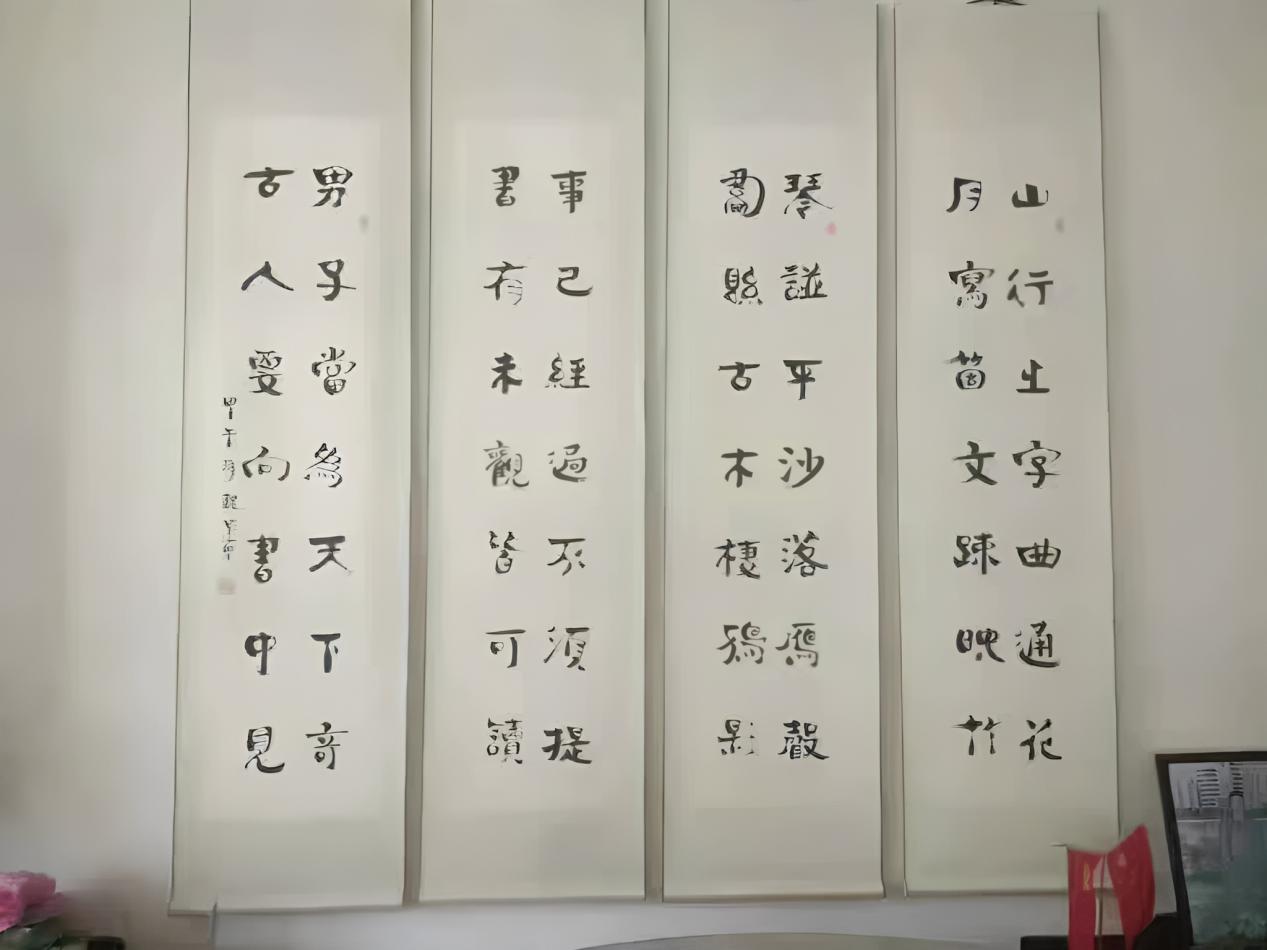 山行之字曲通花
月寫箇文疎映竹
琴諡平沙落雁聲
畵縣古木棲鴉影
事已經過不須提
書有未觀皆可讀
男子當為天下奇
古人要向書中見
甲午